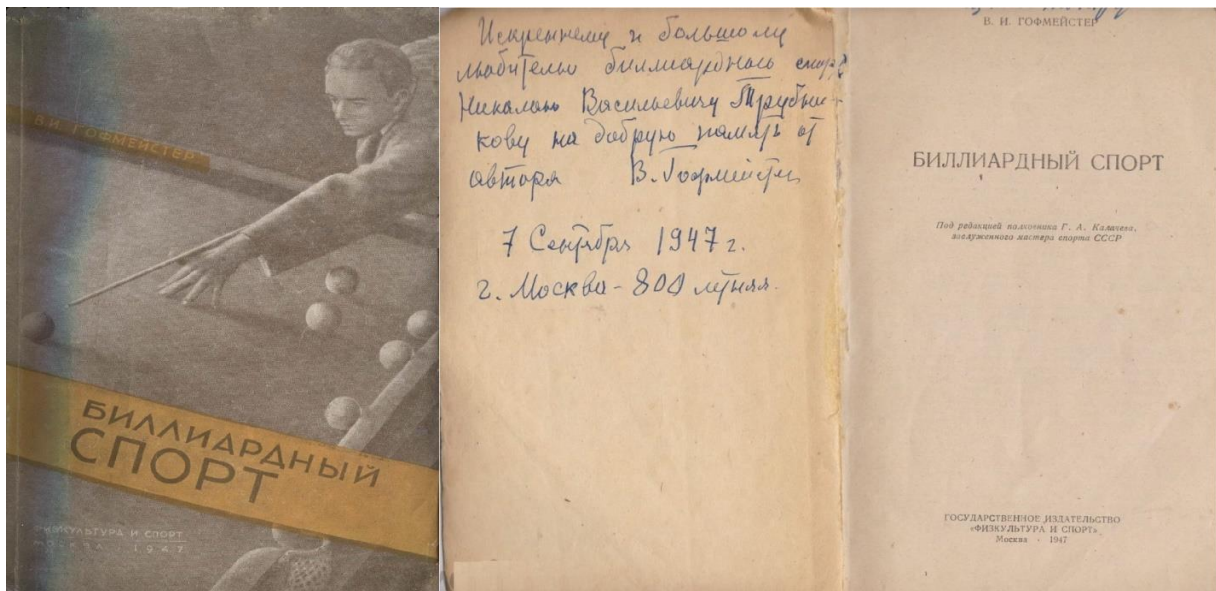 В. И. ГОФМЕЙСТЕР
БИЛЛИАРДНЫЙ
СПОРТ
ФИЗКУЛЬТУРА И СПОРТ
МОСКВА 1947
Искреннему и большому
любителю биллиардного спорта
Николаю Васильевичу Трубни-
кову на добрую память от
автора В. Гофмейстер
7 Сентября 1947 г.
г. Москва - 800 летняя.
В. И. ГОФМЕЙСТЕР
БИЛЛИАРДНЫЙ СПОРТ
Под редакцией полковника Г. А. Калачева,
заслуженного мастера спорта СССР
ГОСУДАРСТВЕННОЕ ИЗДАТЕЛЬСТВО
«ФИЗКУЛЬТУРА И СПОРТ»
Москва · 1947